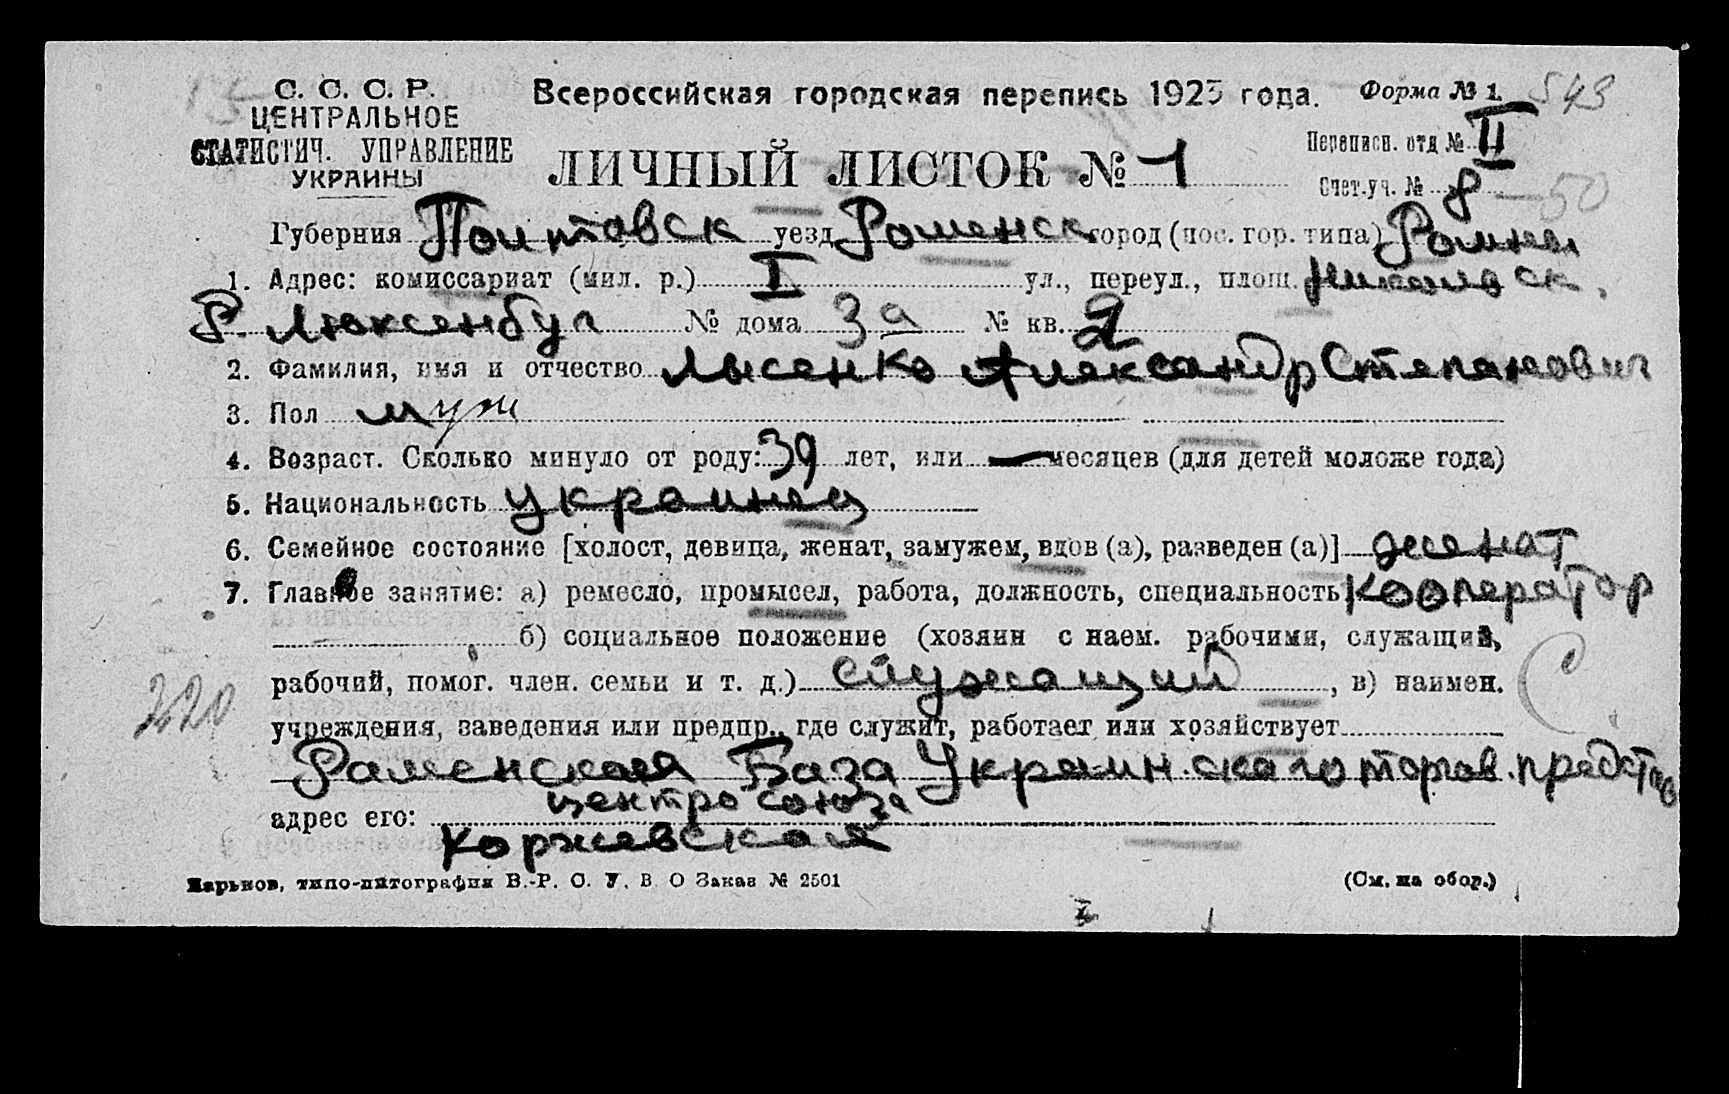 С. С. С. Р. Всероссийская городская перепись 1923 года. Форма № 1. 543
ЦЕНТРАЛЬНОЕ
СТАТИСТИЧ. УПРАВЛЕНИЕ
УКРАИНЫ
Переписн. отд № II
ЛИЧНЫЙ ЛИСТОК № 1
Счет.уч. № 8 — 50
Губерния Полтавск уезд Роменск город (пос. гор. типа) Ромны
1. Адрес: комиссариат (мил. р.) I ул., переул., площ.
Р. Люксенбуг № дома 3а № кв. 2
2. Фамилия, имя и отчество Лысенко Александр Степанович
3. Пол муж
4. Возраст. Сколько минуло от роду: 39 лет, или — месяцев (для детей моложе года)
5. Национальность украинец
6. Семейное состояние [холост, девица, женат, замужем, вдов (а), разведен (а)] женат
7. Главное занятие: а) ремесло, промысел, работа, должность, специальность кооператор
б) социальное положение (хозяин с наем. рабочими, служащий,
рабочий, помог. член. семьи и т. д.) служащий, в) наимен.
320
учреждения, заведения или предпр., где служит, работает или хозяйствует
Раменская База Украинского торгов. представ
центро союза
адрес его: Коржевская
Харьков, типо-литография В.-Р. С. У. В О Заказ № 2501 (См. на обор.)